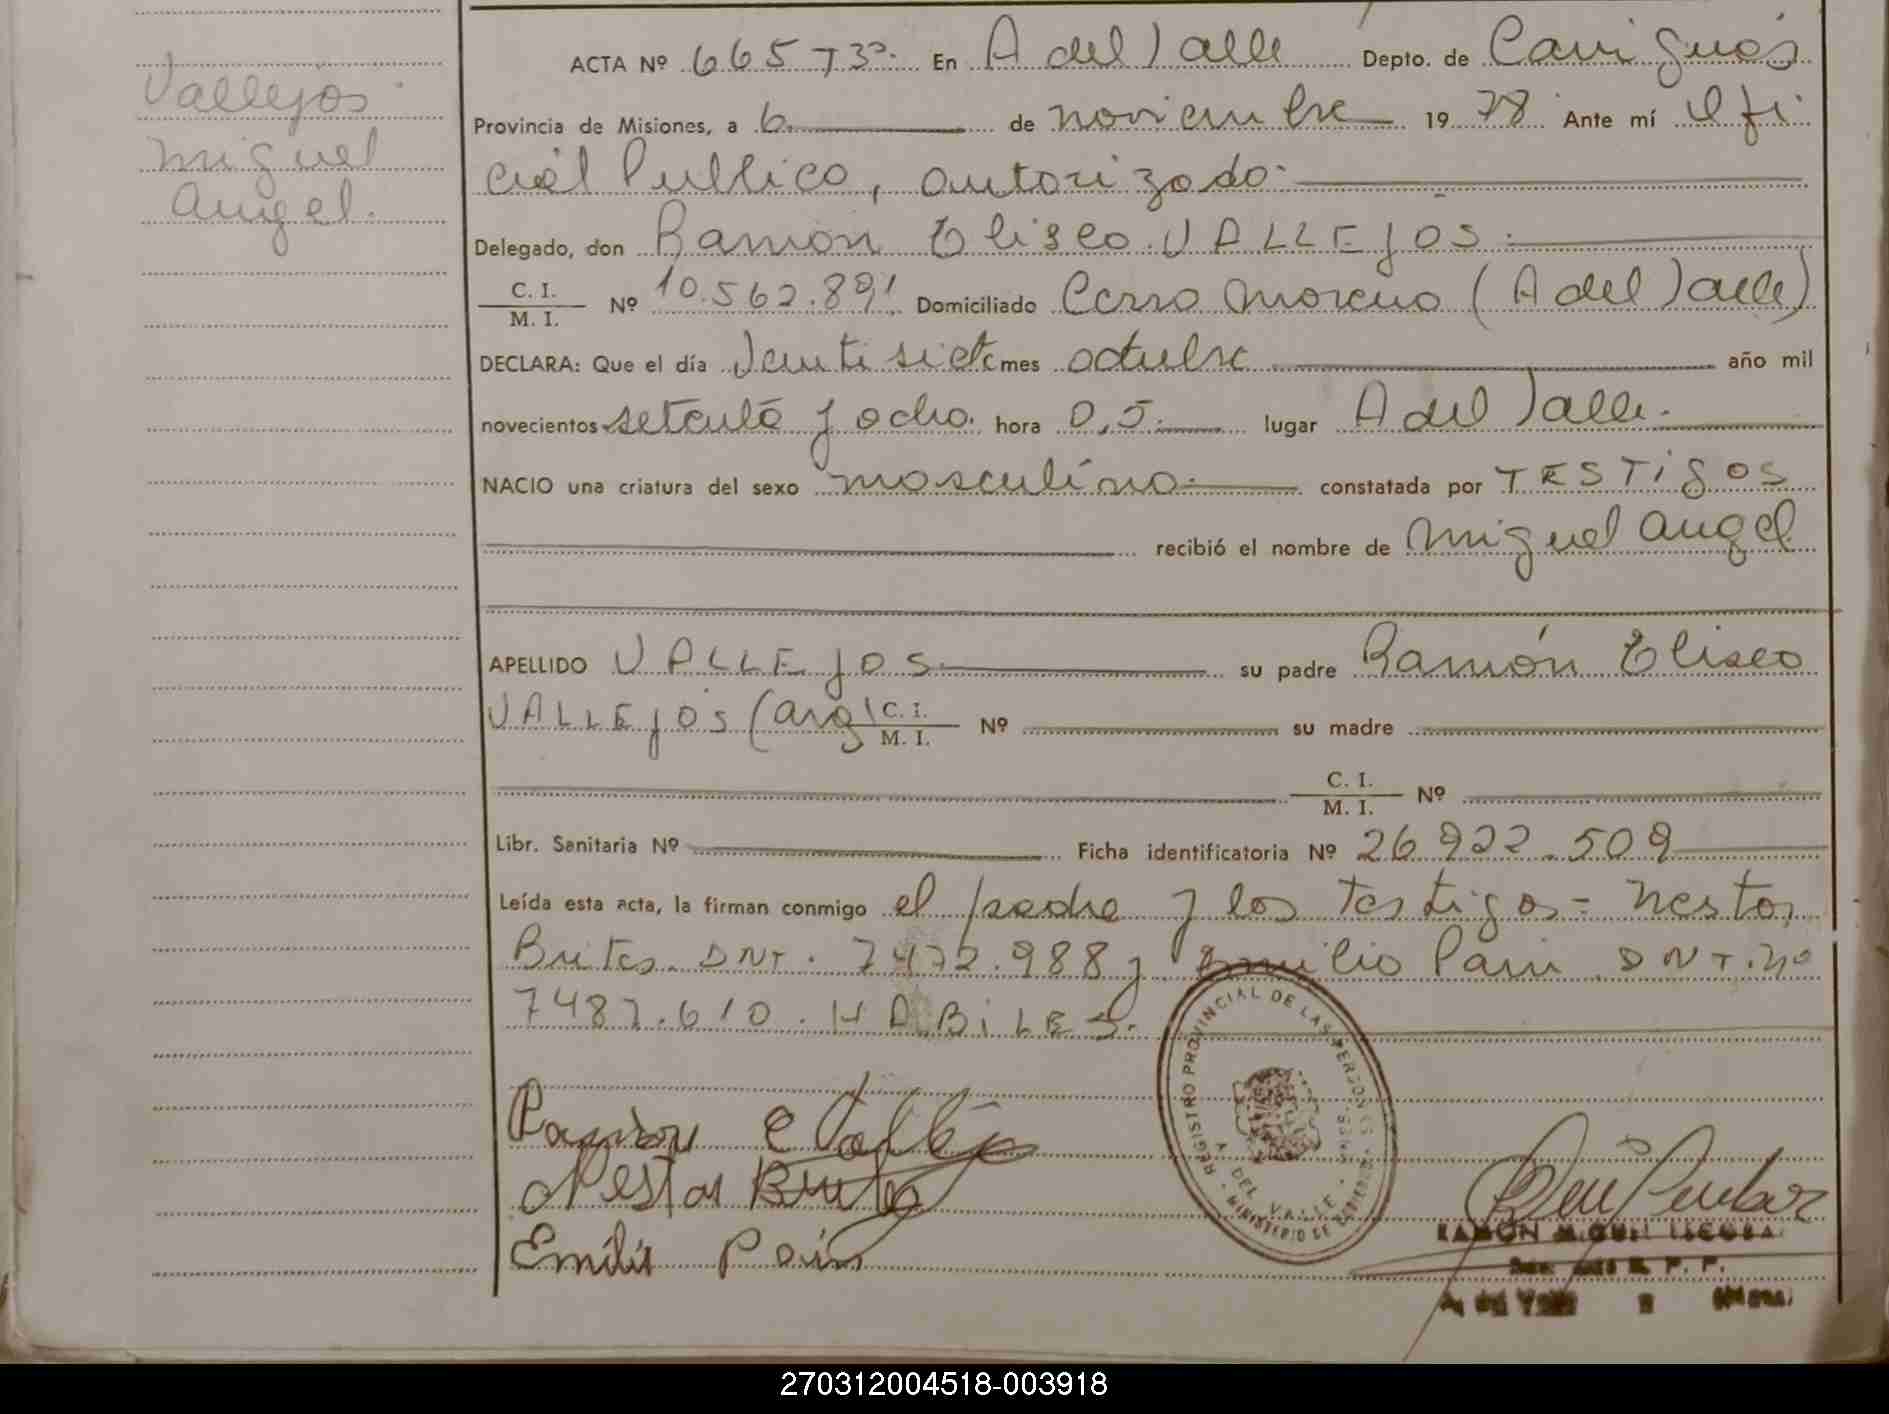 Vallejos
Miguel
Angel.
ACTA Nº 665 T3º. En A del Valle Depto. de Cainguás
Provincia de Misiones, a 6 de noviembre 1978. Ante mí Ofi
cial Publico, autorizado.
Delegado, don Ramón Eliseo VALLEJOS.
C. I. / M. I. Nº 10.562.891 Domiciliado Cerro Moreno (A del Valle)
DECLARA: Que el día Veintisiete mes octubre año mil
novecientos setenta y ocho. hora 0,5. lugar A del Valle.
NACIO una criatura del sexo masculino. constatada por TESTIGOS
recibió el nombre de Miguel Angel
APELLIDO VALLEJOS su padre Ramón Eliseo
VALLEJOS (arg) C. I. / M. I. Nº su madre
C. I. / M. I. Nº
Libr. Sanitaria Nº Ficha identificatoria Nº 26.922.509
Leída esta acta, la firman conmigo el padre y los testigos = Nestor
Brites. DNI. 7472.988 y Emilio Pain DNI. Nº
7487.610. HABILES.
Ramón E Vallejo
Nestor Brites
Emilio Pain
REGISTRO PROVINCIAL DE LAS PERSONAS
A. DEL VALLE
MINISTERIO DE GOBIERNO
RAMON MIGUEL
270312004518-003918